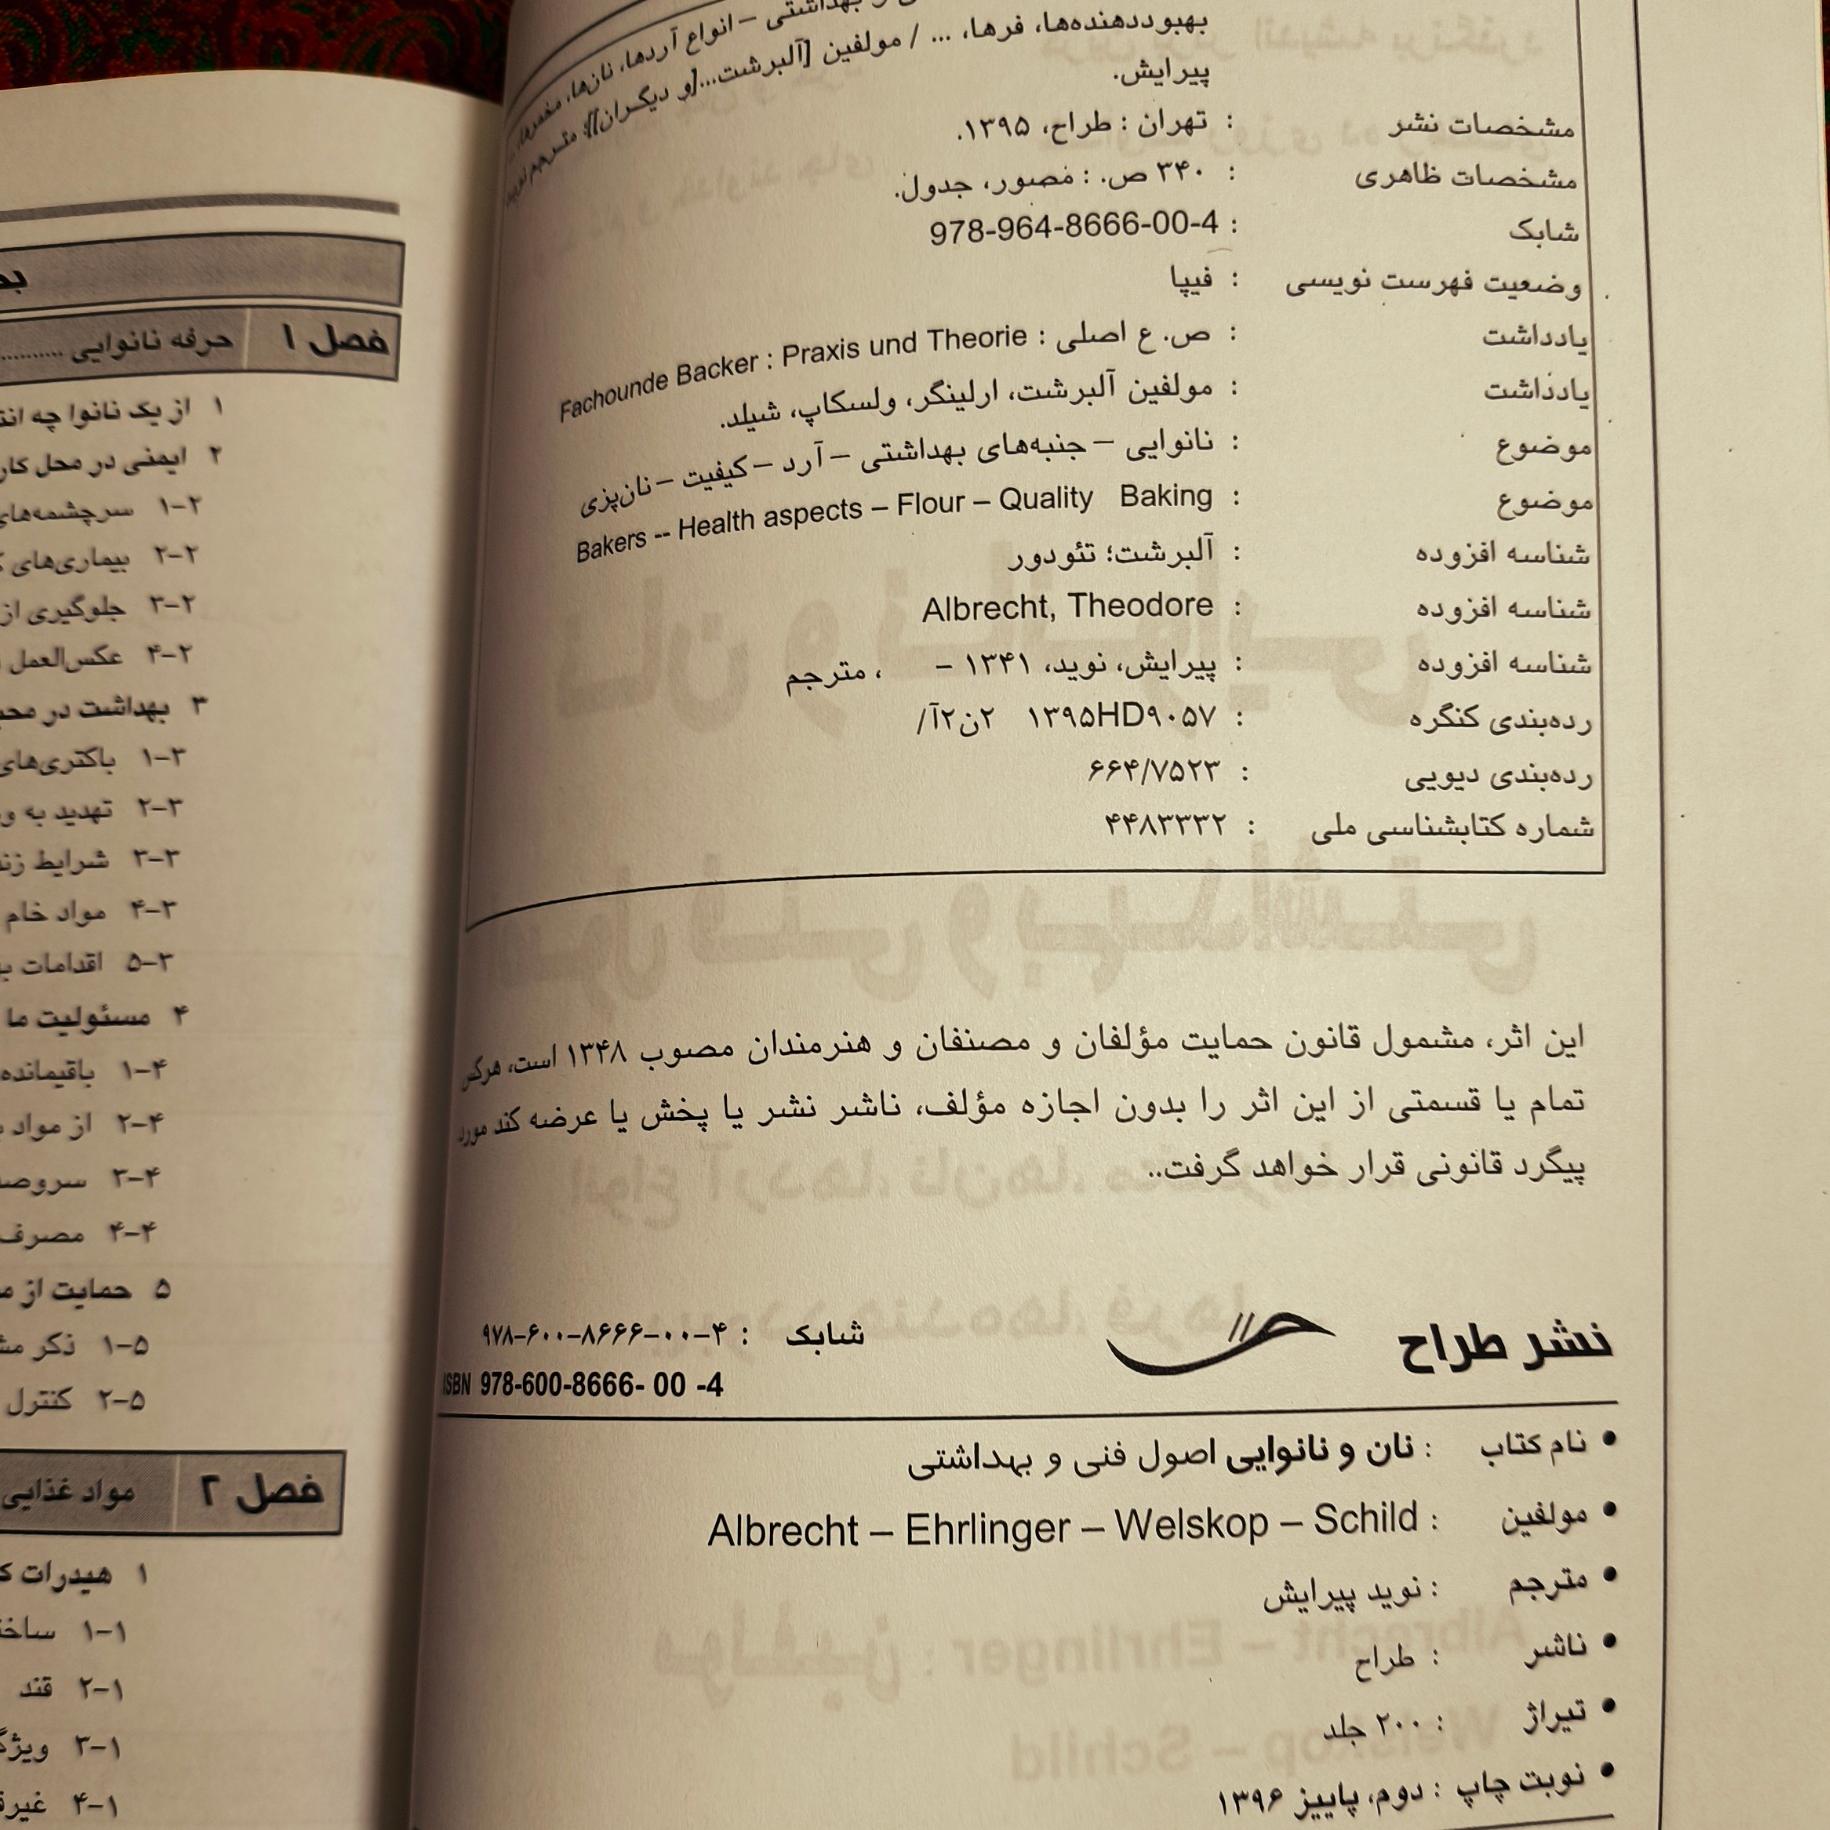 بهداشتی – انواع آردها، نان‌ها، مخمرها،
بهبوددهنده‌ها، فرها، ... / مولفین [آلبرشت...[و دیگران]]؛ مترجم نوید
پیرایش.
مشخصات نشر : تهران : طراح، ۱۳۹۵.
مشخصات ظاهری : ۳۴۰ ص. : مصور، جدول.
شابک : 978-964-8666-00-4
وضعیت فهرست نویسی : فیپا
یادداشت : ص. ع اصلی : Fachounde Backer : Praxis und Theorie
یادداشت : مولفین آلبرشت، ارلینگر، ولسکاپ، شیلد.
موضوع : نانوایی – جنبه‌های بهداشتی – آرد – کیفیت – نان‌پزی
موضوع : Bakers -- Health aspects – Flour – Quality Baking
شناسه افزوده : آلبرشت؛ تئودور
شناسه افزوده : Albrecht, Theodore
شناسه افزوده : پیرایش، نوید، ۱۳۴۱ – ، مترجم
رده‌بندی کنگره : ۱۳۹۵HD۹۰۵۷ ۲ن۲آ/
رده‌بندی دیویی : ۶۶۴/۷۵۲۳
شماره کتابشناسی ملی : ۴۴۸۳۳۳۲
این اثر، مشمول قانون حمایت مؤلفان و مصنفان و هنرمندان مصوب ۱۳۴۸ است، هرکس
تمام یا قسمتی از این اثر را بدون اجازه مؤلف، ناشر نشر یا پخش یا عرضه کند مورد
پیگرد قانونی قرار خواهد گرفت..
نشر طراح
شابک : ۹۷۸-۶۰۰-۸۶۶۶-۰۰-۴
ISBN 978-600-8666- 00 -4
• نام کتاب : نان و نانوایی اصول فنی و بهداشتی
• مولفین : Albrecht – Ehrlinger – Welskop – Schild
• مترجم : نوید پیرایش
• ناشر : طراح
• تیراژ : ۲۰۰ جلد
• نوبت چاپ : دوم، پاییز ۱۳۹۶
فصل ۱ حرفه نانوایی ..........
۱ از یک نانوا چه
۲ ایمنی در محل کار
۱-۲ سرچشمه‌های
۲-۲ بیماری‌های
۳-۲ جلوگیری از
۴-۲ عکس‌العمل
۳ بهداشت در
۱-۳ باکتری‌های
۲-۳ تهدید به
۳-۳ شرایط
۴-۳ مواد خام
۵-۳ اقدامات
۴ مسئولیت ما
۱-۴ باقیمانده
۲-۴ از مواد
۳-۴
۴-۴ مصرف
۵ حمایت از
۱-۵ ذکر
۲-۵ کنترل
فصل ۲ مواد غذایی
۱ هیدرات
۱-۱
۲-۱ قند
۳-۱
۴-۱